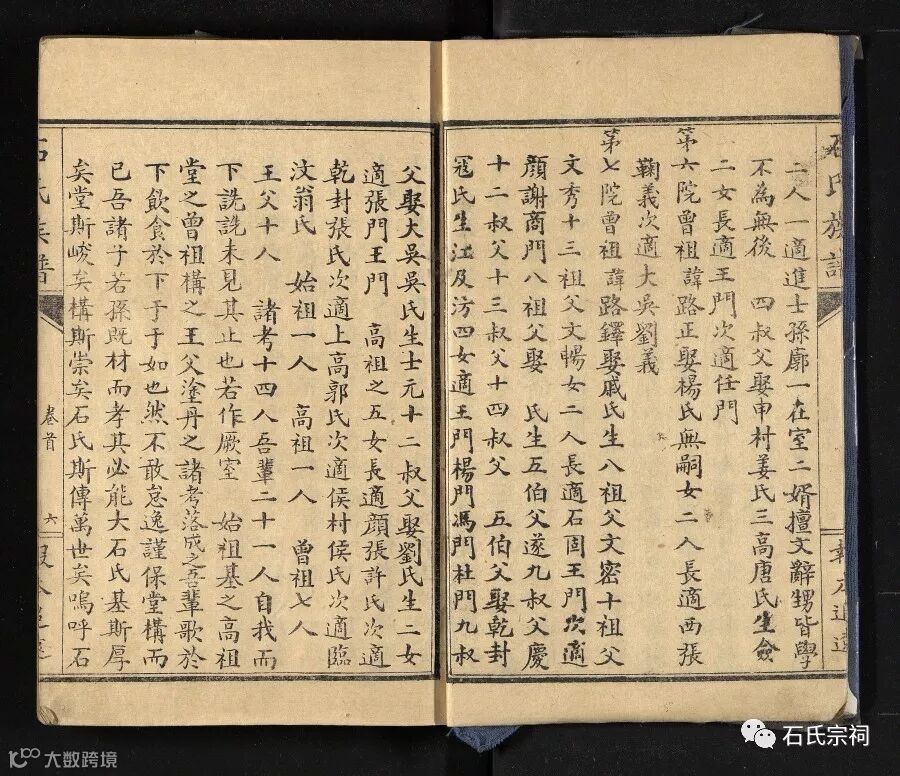 石氏族譜
報本追遠
二人一適進士孫廓一在室二婿擅文辭甥皆學
不為無後　四叔父娶申村姜氏三高唐氏生儉
二女長適王門次適任門
第六院曾祖諱路正娶楊氏無嗣女二人長適西張
鞠義次適大吳劉義
第七院曾祖諱路鐸娶戚氏生八祖父文密十祖父
文秀十三祖父文暢女二人長適石固王門次適
顏謝商門八祖父娶　氏生五伯父遂九叔父慶
十二叔父十三叔父十四叔父　五伯父娶乾封
寇氏生江及汸四女適王門楊門馮門杜門九叔
父娶大吳吳氏生士元十二叔父娶劉氏生二女
適張門王門　高祖之五女長適顏張許氏次適
乾封張氏次適上高郭氏次適侯村侯氏次適臨
汶翁氏　始祖一人　高祖一人　曾祖七人
王父十八　諸考十四人吾輩二十一人自我而
下詵詵未見其止也若作厥室　始祖基之高祖
堂之曾祖構之王父塗丹之諸考落成之吾輩歌於
下飲食於下于于如也然不敢怠逸謹保堂構而
已吾諸子若孫既材而孝其必能大石氏基斯厚
矣堂斯峻矣構斯崇矣石氏斯傳萬世矣嗚呼石
石氏族譜
卷首
六
報本追遠
石氏宗祠
大數跨境